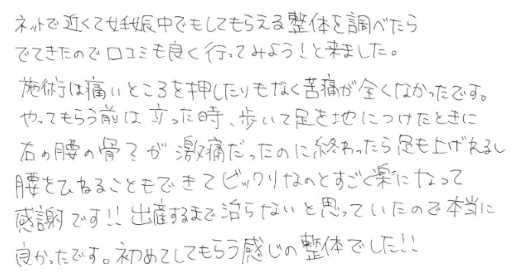 ネットで近くて妊娠中でもしてもらえる整体を調べたら
でてきたので口コミも良く行ってみよう！と来ました。
施術は痛いところを押したりもなく苦痛が全くなかったです。
やってもらう前は立った時、歩いて足を地につけたときに
右の腰の骨？が激痛だったのに終わったら足も上げえるし
腰をひねることもできてビックリなのとすごく楽になって
感謝です!! 出産するまで治らないと思っていたので本当に
良かったです。初めてしてもらう感じの整体でした!!